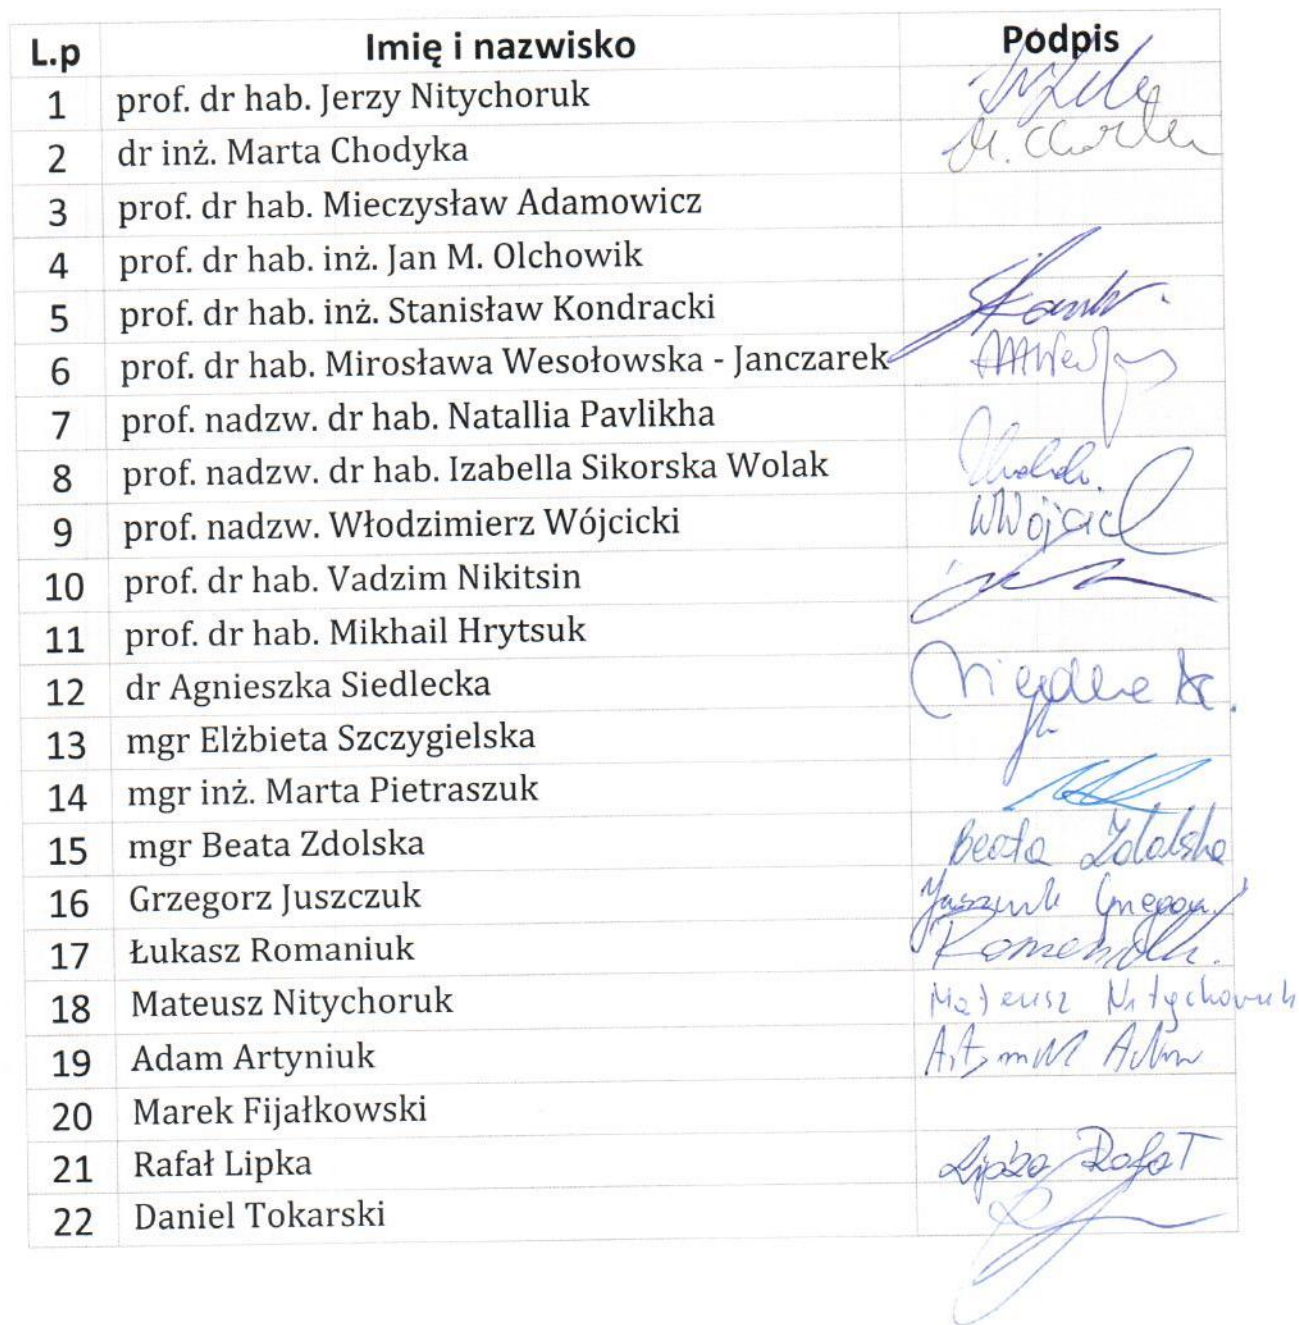 L.p Imię i nazwisko Podpis
1 prof. dr hab. Jerzy Nitychoruk
2 dr inż. Marta Chodyka
3 prof. dr hab. Mieczysław Adamowicz
4 prof. dr hab. inż. Jan M. Olchowik
5 prof. dr hab. inż. Stanisław Kondracki
6 prof. dr hab. Mirosława Wesołowska - Janczarek
7 prof. nadzw. dr hab. Natallia Pavlikha
8 prof. nadzw. dr hab. Izabella Sikorska Wolak
9 prof. nadzw. Włodzimierz Wójcicki
10 prof. dr hab. Vadzim Nikitsin
11 prof. dr hab. Mikhail Hrytsuk
12 dr Agnieszka Siedlecka
13 mgr Elżbieta Szczygielska
14 mgr inż. Marta Pietraszuk
15 mgr Beata Zdolska Beata Zdolska
16 Grzegorz Juszczuk
17 Łukasz Romaniuk
18 Mateusz Nitychoruk Mateusz Nitychoruk
19 Adam Artyniuk
20 Marek Fijałkowski
21 Rafał Lipka Lipka Rafał
22 Daniel Tokarski